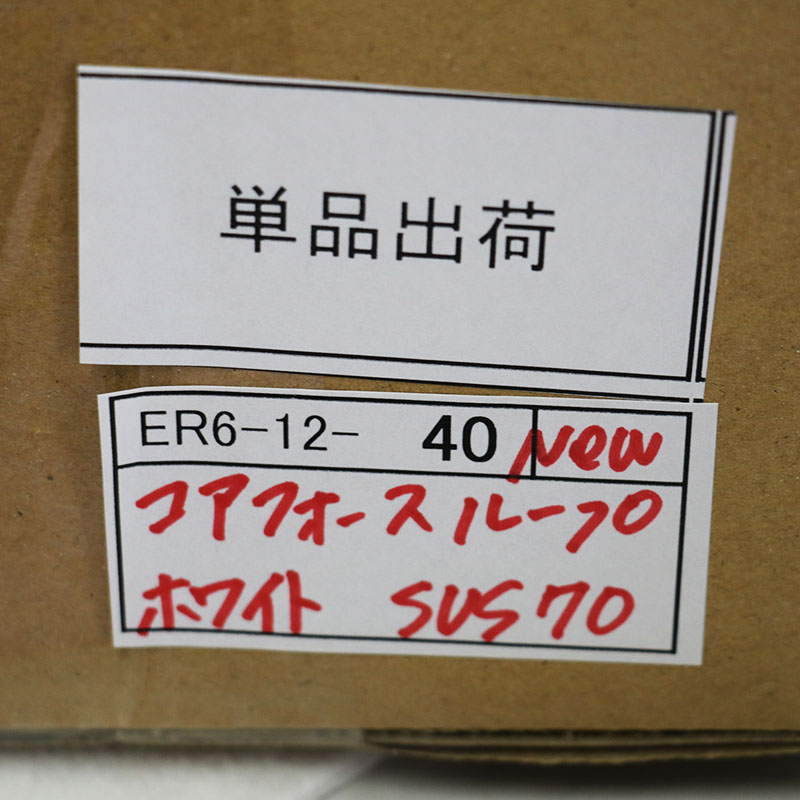 単品出荷
ER6-12- 40 New
コアフォースループ
ホワイト SUS70